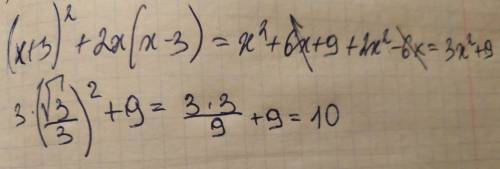 (x+3)² + 2x(x-3) = x² + 6x + 9 + 2x² - 6x = 3x² + 9
3·(√3/3)² + 9 = 3·3/9 + 9 = 10